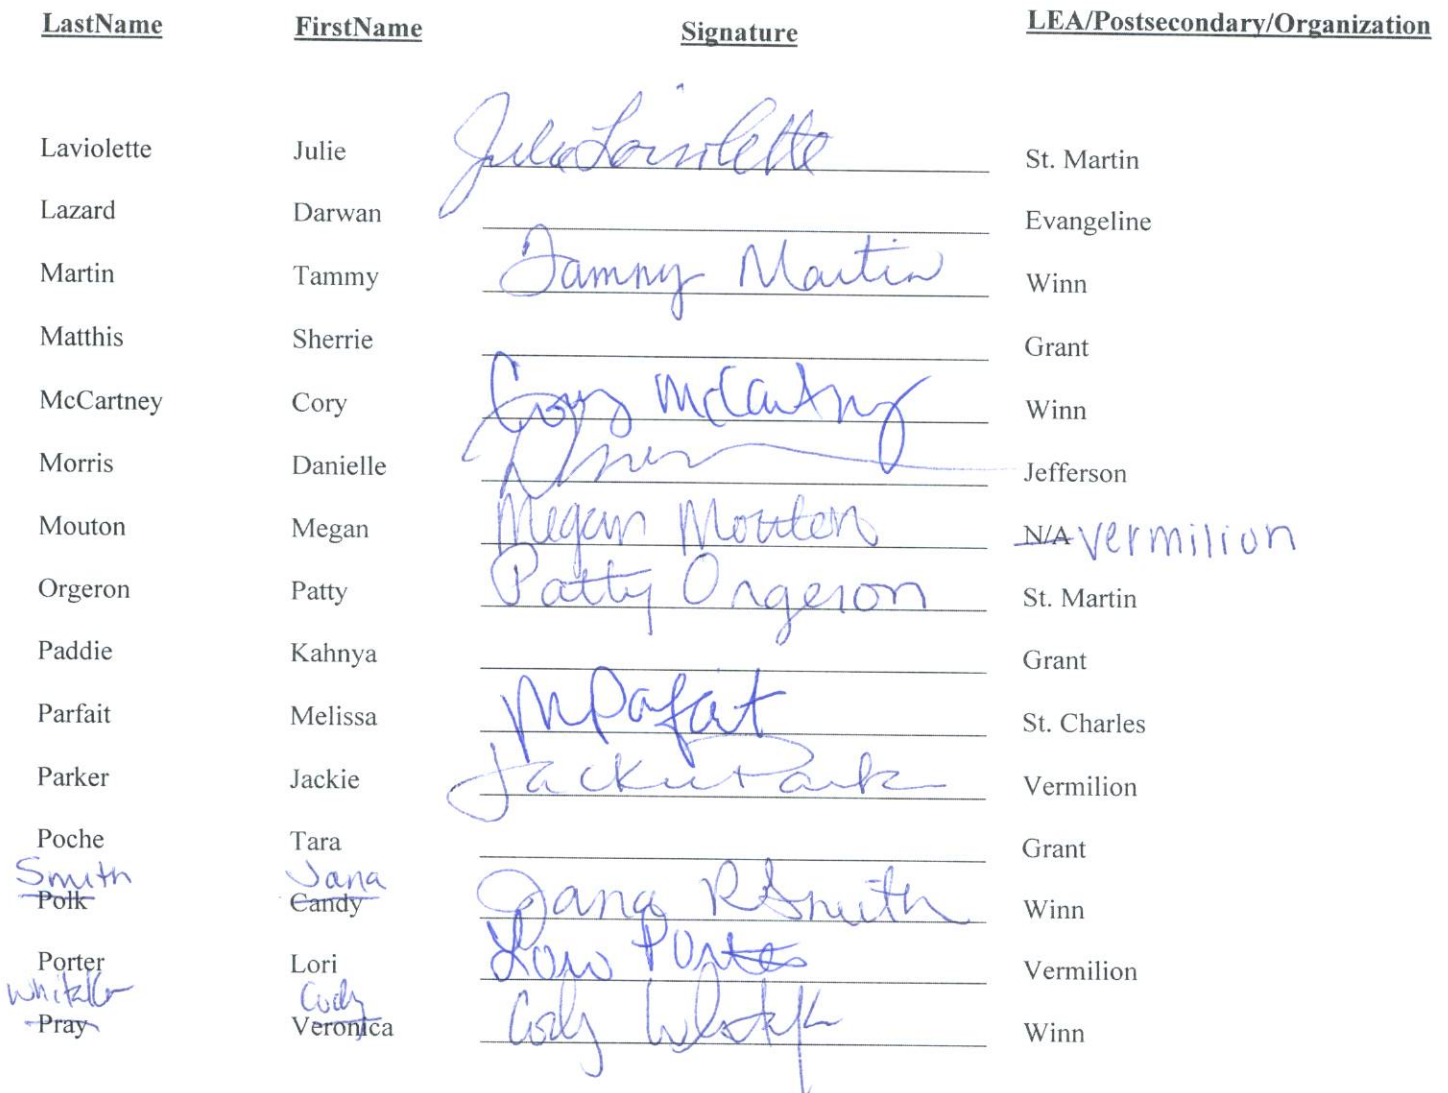 LastName FirstName Signature LEA/Postsecondary/Organization
Laviolette Julie Julie Laviolette St. Martin
Lazard Darwan Evangeline
Martin Tammy Tammy Martin Winn
Matthis Sherrie Grant
McCartney Cory Cory McCartney Winn
Morris Danielle Jefferson
Mouton Megan Megan Mouton N/A Vermilion
Orgeron Patty Patty Orgeron St. Martin
Paddie Kahnya Grant
Parfait Melissa M Parfait St. Charles
Parker Jackie Jackie Parker Vermilion
Poche Tara Grant
Smith Jana
Polk Candy Jana R Smith Winn
Porter Lori Lori Porter Vermilion
Whitaker Cody
Pray Veronica Cody Winn